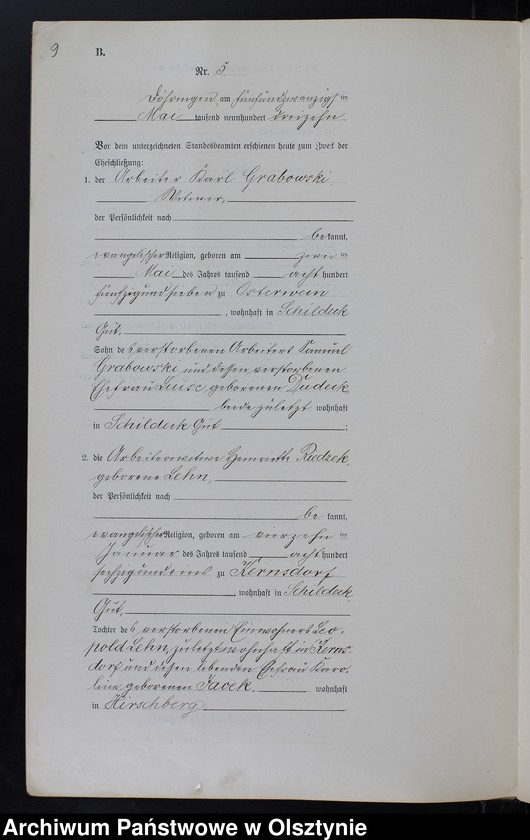 9
B.
Nr. 5
Döhringen, am fünfundzwanzigsten
Mai tausend neunhundert dreizehn
Vor dem unterzeichneten Standesbeamten erschienen heute zum Zweck der
Eheschließung:
1. der Arbeiter Karl Grabowski
Witwer,
der Persönlichkeit nach
be kannt,
evangelischer Religion, geboren am
Mai des Jahres tausend acht hundert
fünfzigundsieben zu Osterwein
, wohnhaft in Schildeck
Gut,
Sohn des verstorbenen Arbeiters Samuel
Grabowski und dessen verstorbenen
Ehefrau Luise geborenen Dudeck,
beide zuletzt wohnhaft
in Schildeck Gut ;
2. die Arbeiterwitwe Heinriette
geborene Lehn,
der Persönlichkeit nach
be kannt,
evangelischer Religion, geboren am vierzehn ten
Januar des Jahres tausend acht hundert
sechzigundeins zu Kernsdorf
, wohnhaft in Schildeck
Gut,
Tochter des verstorbenen Einwohners Leo-
pold Lehn, zuletzt wohnhaft in Kerns-
dorf und dessen lebenden Ehefrau Karo-
line geborenen Jacek, wohnhaft
in Hirschberg.
Archiwum Państwowe w Olsztynie